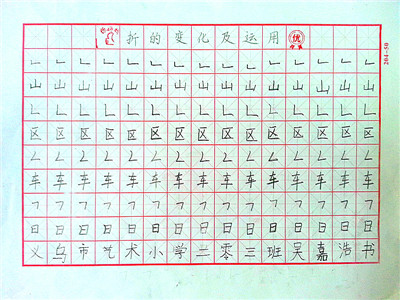 折的变化及运用 优
山山山山山山山山山山山山山山山
区区区区区区区区区区区区区区区
车车车车车车车车车车车车车车车
日日日日日日日日日日日日日日日
义乌市艺术小学二零三班吴嘉浩书
204-50